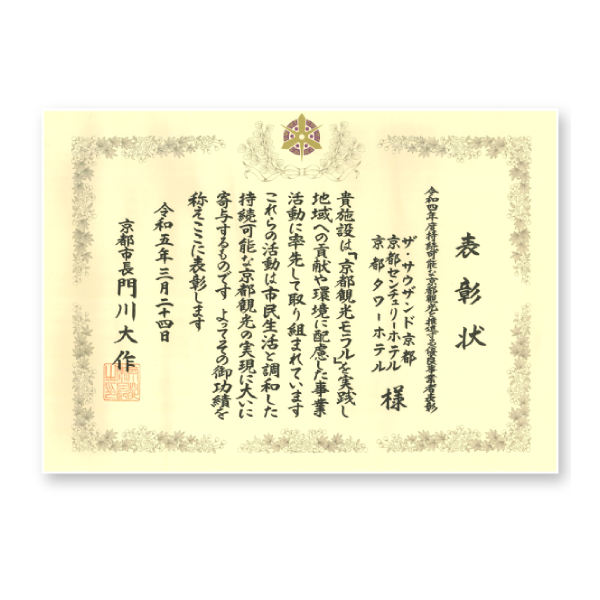 表彰状
令和四年度持続可能な京都観光を推進する優良事業者表彰
ザ・サウザンド京都
京都センチュリーホテル
京都タワーホテル
様
貴施設は「京都観光モラル」を実践し
地域への貢献や環境に配慮した事業
活動に率先して取り組まれています
これらの活動は市民生活と調和した
持続可能な京都観光の実現に大いに
寄与するものです よってその御功績を
称えここに表彰します
令和五年三月二十四日
京都市長 門川大作